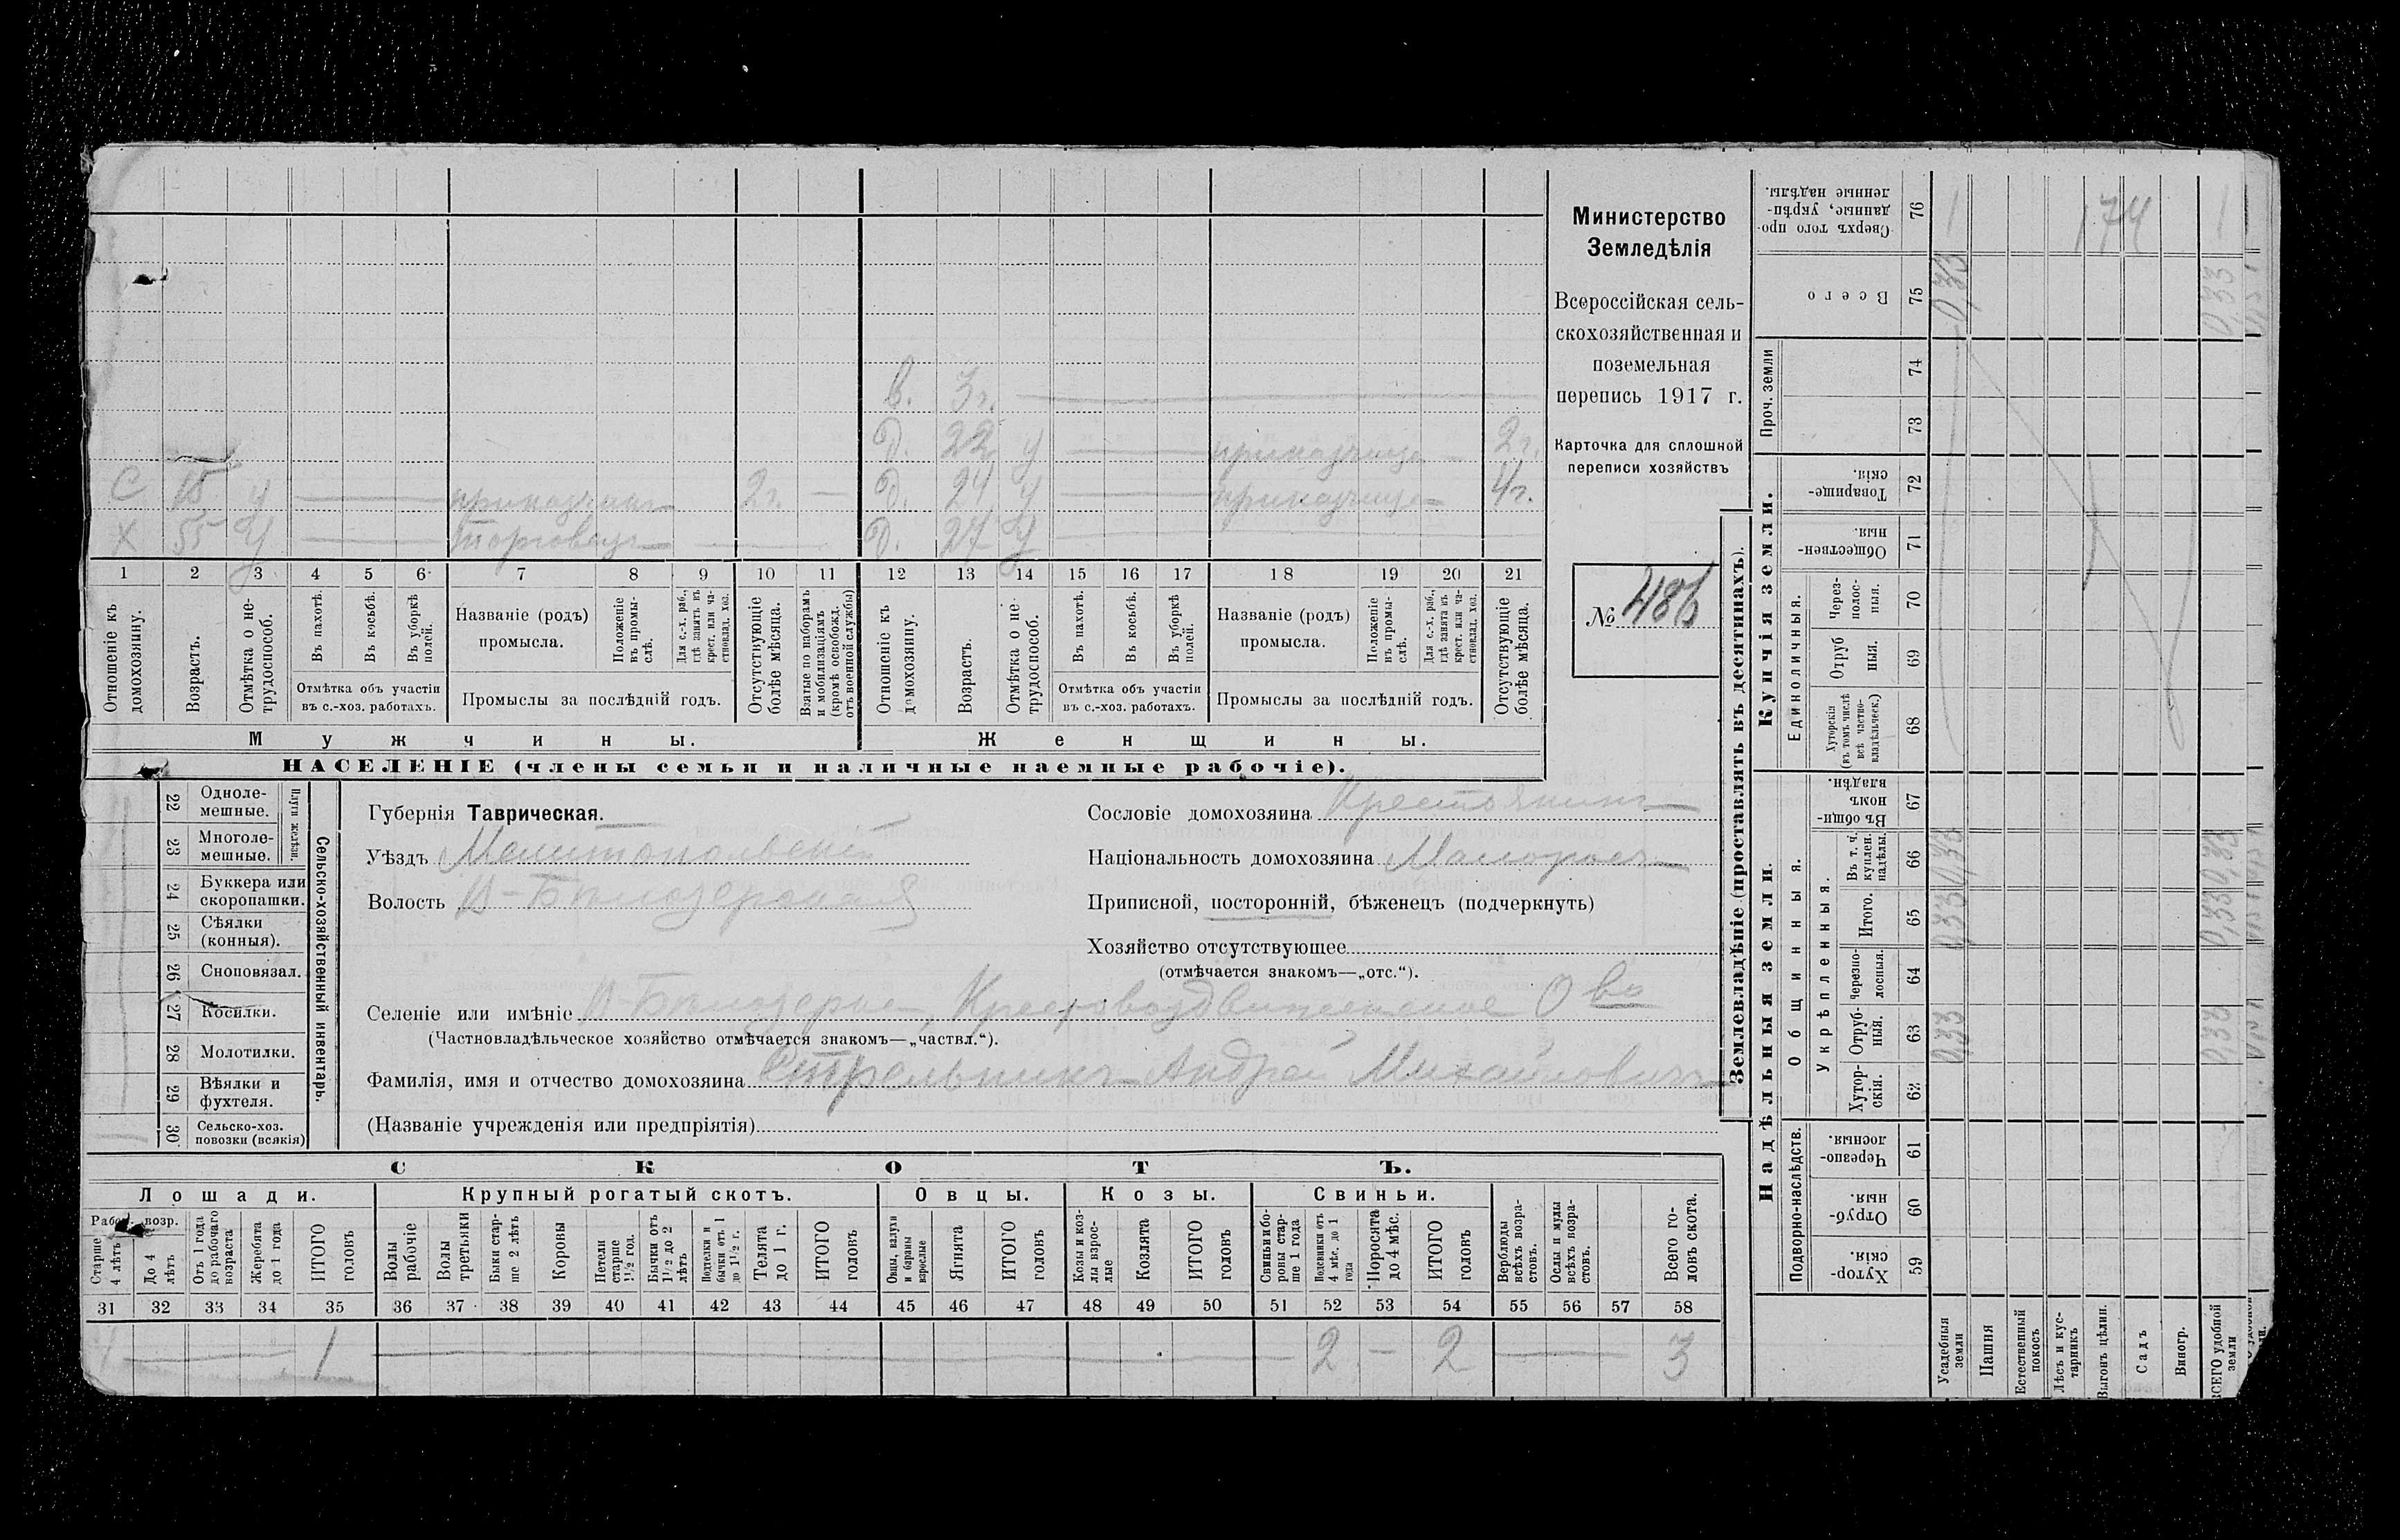 в. 3г.
д. 22 у приказчица 2г.
С 18 у приказчик 2г. — д. 24 у приказчица 4г.
Х 55 У торговец д. 27 У
1 2 3 4 5 6 7 8 9 10 11 12 13 14 15 16 17 18 19 20 21
Отношеніе къ домохозяину.
Возрастъ.
Отмѣтка о нетрудоспособ.
Въ пахотѣ.
Въ косьбѣ.
Въ уборкѣ полей.
Отмѣтка объ участіи
въ с.-хоз. работахъ.
Названіе (родъ)
промысла.
Положеніе въ промыслѣ.
Для с.-х. раб., гдѣ занятъ въ крест. или частновлад. хоз.
Промыслы за послѣдній годъ.
Отсутствующіе болѣе мѣсяца.
Взятые по наборамъ и мобилизаціямъ (кромѣ освобожд. отъ военной службы)
Отношеніе къ домохозяину.
Возрастъ.
Отмѣтка о не трудоспособ.
Въ пахотѣ.
Въ косьбѣ.
Въ уборкѣ полей.
Отмѣтка объ участіи
въ с.-хоз. работахъ.
Названіе (родъ)
промысла.
Положеніе въ промыслѣ.
Для с.-х. раб., гдѣ занята въ крест. или частновлад. хоз.
Промыслы за послѣдній годъ.
Отсутствующіе болѣе мѣсяца.
Мужчины.
Женщины.
НАСЕЛЕНІЕ (члены семьи и наличные наемные рабочіе).
Министерство
Земледѣлія
Всероссійская сель-
скохозяйственная и
поземельная
перепись 1917 г.
Карточка для сплошной
переписи хозяйствъ
№ 486
22 Одноле-
мешные.
23 Многоле-
мешные.
Плуги желѣзн.
24 Буккера или
скоропашки.
25 Сѣялки
(конныя).
26 Сноповязал.
27 Косилки.
28 Молотилки.
29 Вѣялки и
фухтеля.
30 Сельско-хоз.
повозки (всякія)
Сельско-хозяйственный инвентарь.
Губернія Таврическая.
Уѣздъ Мелитопольскій
Волость В-Бѣлозерская
Сословіе домохозяина Крестьянинъ
Національность домохозяина Малороссъ
Приписной, посторонній, бѣженецъ (подчеркнуть)
Хозяйство отсутствующее
(отмѣчается знакомъ—„отс.“).
Селеніе или имѣніе В-Бѣлозерка, Крестовоздвиженское О во
(Частновладѣльческое хозяйство отмѣчается знакомъ—„частвл.“).
Фамилія, имя и отчество домохозяина Стрельникъ Андрей Михайловичъ
(Названіе учрежденія или предпріятія)
СКОТЪ.
Лошади. Крупный рогатый скотъ. Овцы. Козы. Свиньи.
Рабоч. возр.
Старше 4 лѣтъ
До 4 лѣтъ
Отъ 1 года до рабочаго возраста
Жеребята до 1 года
ИТОГО головъ
Волы рабочіе
Волы третьяки
Быки старше 2 лѣтъ
Коровы
Нетели старше 1½ год.
Бычки отъ 1½ до 2 лѣтъ
Подтелки и бычки отъ 1 до 1½ г.
Телята до 1 г.
ИТОГО головъ
Овцы, валухи и бараны взрослые
Ягнята
ИТОГО головъ
Козы и козлы взрослые
Козлята
ИТОГО головъ
Свиньи и боровы старше 1 года
Подсвинки отъ 4 мѣс. до 1 года
Поросята до 4 мѣс.
ИТОГО головъ
Верблюды всѣхъ возрастовъ.
Ослы и мулы всѣхъ возрастовъ.
Всего головъ скота.
31 32 33 34 35 36 37 38 39 40 41 42 43 44 45 46 47 48 49 50 51 52 53 54 55 56 57 58
1 1 2 — 2 3
Землевладѣніе (проставлять въ десятинахъ).
Надѣльныя земли.
Купчія земли.
Проч. земли
Подворно-наслѣдств.
Общинныя.
Укрѣпленныя.
Единоличныя.
Сверхъ того проданные, укрѣпленные надѣлы. 76
Всего 75 0,33 0,33
74
73
Товарищескія. 72
Общественныя. 71
Черезполосныя. 70
Отрубныя. 69
Хуторскія (въ томъ числѣ всѣ частновладѣльческ.) 68
Въ общинномъ владѣн. 67
Въ т. ч. куплен. надѣлы. 66 0,33 0,33
Итого. 65 0,33 0,33
Черезполосныя. 64
Отрубныя. 63 0,33 0,33
Хуторскія. 62
Черезполосныя. 61
Отрубныя. 60
Хуторскія. 59
174
Усадебныя земли
Пашня
Естественный покосъ
Лѣсъ и кустарникъ
Выгонъ цѣлин.
Садъ
Виногр.
ВСЕГО удобной земли